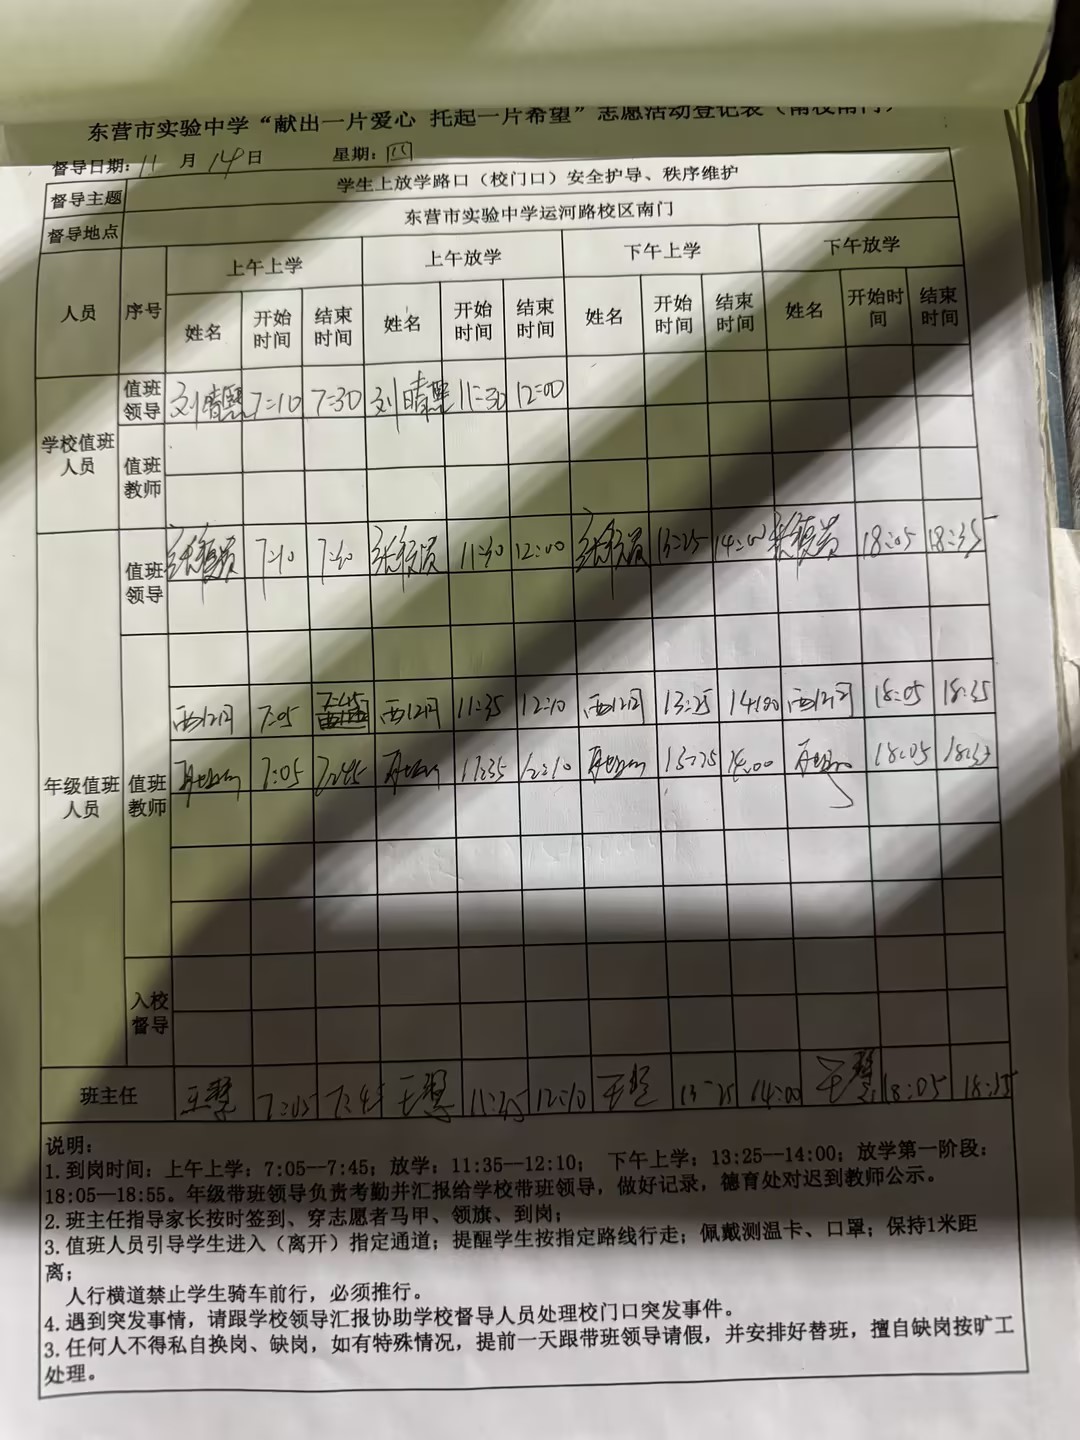 东营市实验中学“献出一片爱心 托起一片希望”志愿活动登记表（南校南门）
督导日期：11 月 14 日 星期：四
督导主题 学生上放学路口（校门口）安全护导、秩序维护
督导地点 东营市实验中学运河路校区南门
人员 序号 上午上学 上午放学 下午上学 下午放学
姓名 开始时间 结束时间 姓名 开始时间 结束时间 姓名 开始时间 结束时间 姓名 开始时间 结束时间
学校值班人员 值班领导 刘 7:10 7:30 刘 11:30 12:00
值班教师
年级值班人员 值班领导 7:10 11:30 12:00 13:25 14:00 18:05 18:35
值班教师 7:05 7:45 11:35 12:10 13:25 14:00 18:05 18:35
7:05 7:45 11:35 12:10 13:25 14:00 18:05
入校督导
班主任 王慧 7:05 7:45 王慧 12:10 王 13:25 14:00 王慧 18:05 18:35
说明：
1.到岗时间：上午上学：7:05—7:45；放学：11:35—12:10； 下午上学：13:25—14:00；放学第一阶段：
18:05—18:55。年级带班领导负责考勤并汇报给学校带班领导，做好记录，德育处对迟到教师公示。
2.班主任指导家长按时签到、穿志愿者马甲、领旗、到岗；
3.值班人员引导学生进入（离开）指定通道；提醒学生按指定路线行走；佩戴测温卡、口罩；保持1米距
离；
人行横道禁止学生骑车前行，必须推行。
4.遇到突发事情，请跟学校领导汇报协助学校督导人员处理校门口突发事件。
3.任何人不得私自换岗、缺岗，如有特殊情况，提前一天跟带班领导请假，并安排好替班，擅自缺岗按旷工
处理。